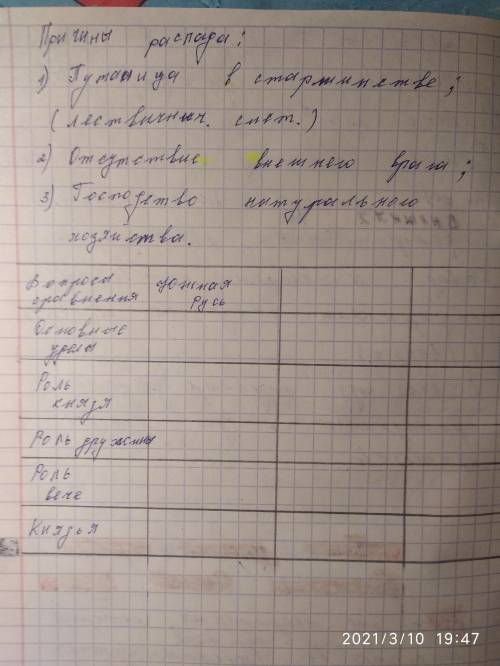 Причины распада:
1) Путаница в старшинстве;
(лествичнич. счет.)
2) Отсутствие внешнего врага;
3) Господство натурального
хозяйства.
Вопросы сравнения Южная Русь
Основные уделы
Роль князя
Роль дружины
Роль вече
Князья
2021/3/10 19:47